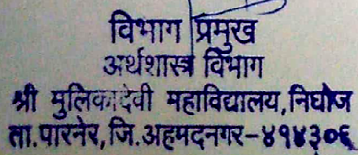 विभाग प्रमुख
अर्थशास्त्र विभाग
श्री मुलिकादेवी महाविद्यालय, निघोज
ता.पारनेर, जि.अहमदनगर-४१४३०६